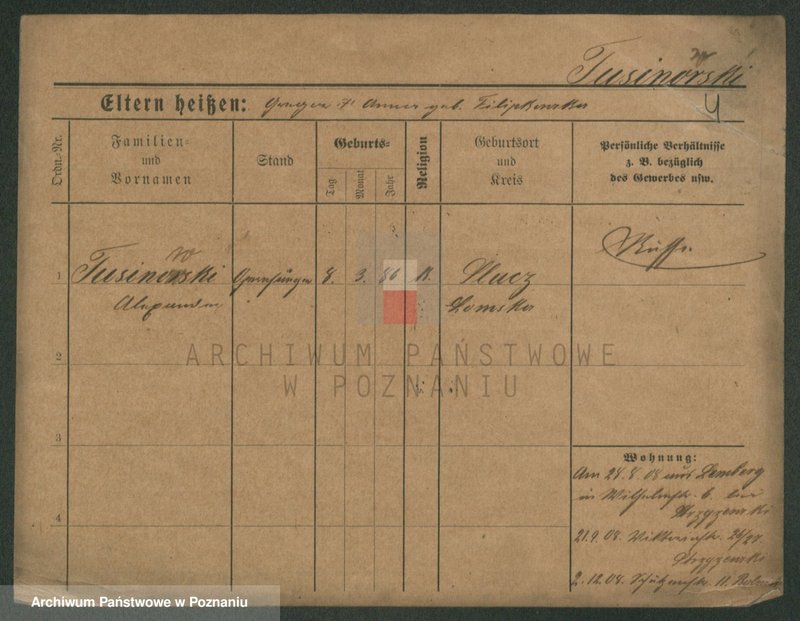 w
Tusinorski
Eltern heißen: Gregor & Anna geb. Filipkowska
4
Ordn.-Nr.
Familien- und Vornamen
Stand
Geburts-
Tag
Monat
Jahr
Religion
Geburtsort und Kreis
Persönliche Verhältnisse z. B. bezüglich des Gewerbes usw.
w
1 Tusinorski 8. 3. 86 K. Russe
Alexander Lomska
ARCHIWUM PAŃSTWOWE
W POZNANIU
2
3
4
Wohnung:
Am 24.8.08 aus Lemberg
in Wilhelmstr. 6. bei
21.9.08. Viktoriastr. 26/27.
2.12.08. Schützenstr. 11.
Archiwum Państwowe w Poznaniu